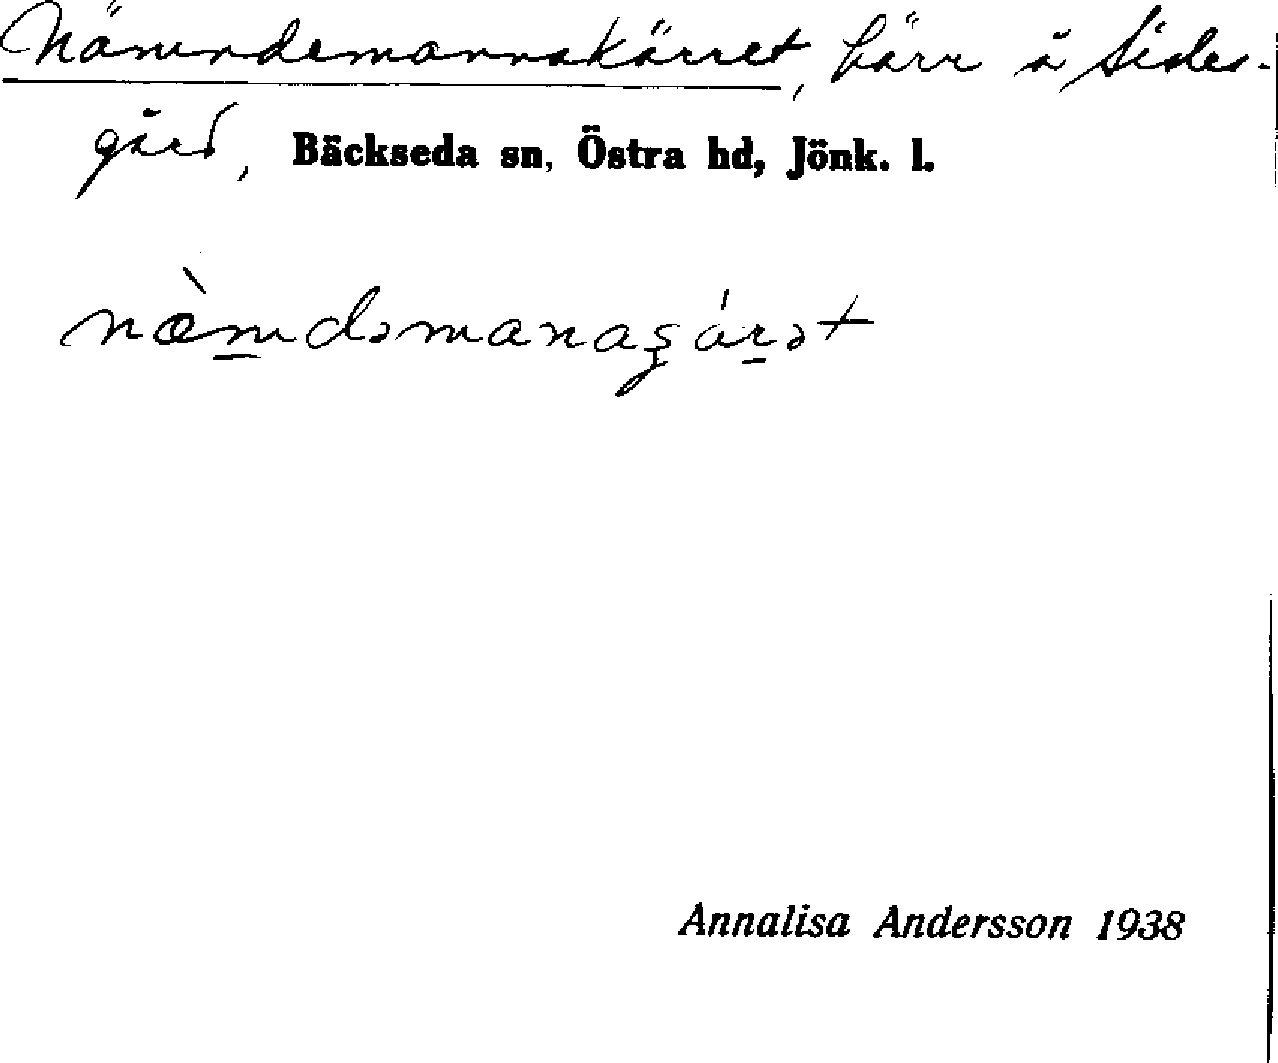 Nämndemannskärret, kärr å Sides-
gård, Bäckseda sn, Östra hd, Jönk. l.
næ̀m̲dəmanaʂár̲ət
Annalisa Andersson 1938